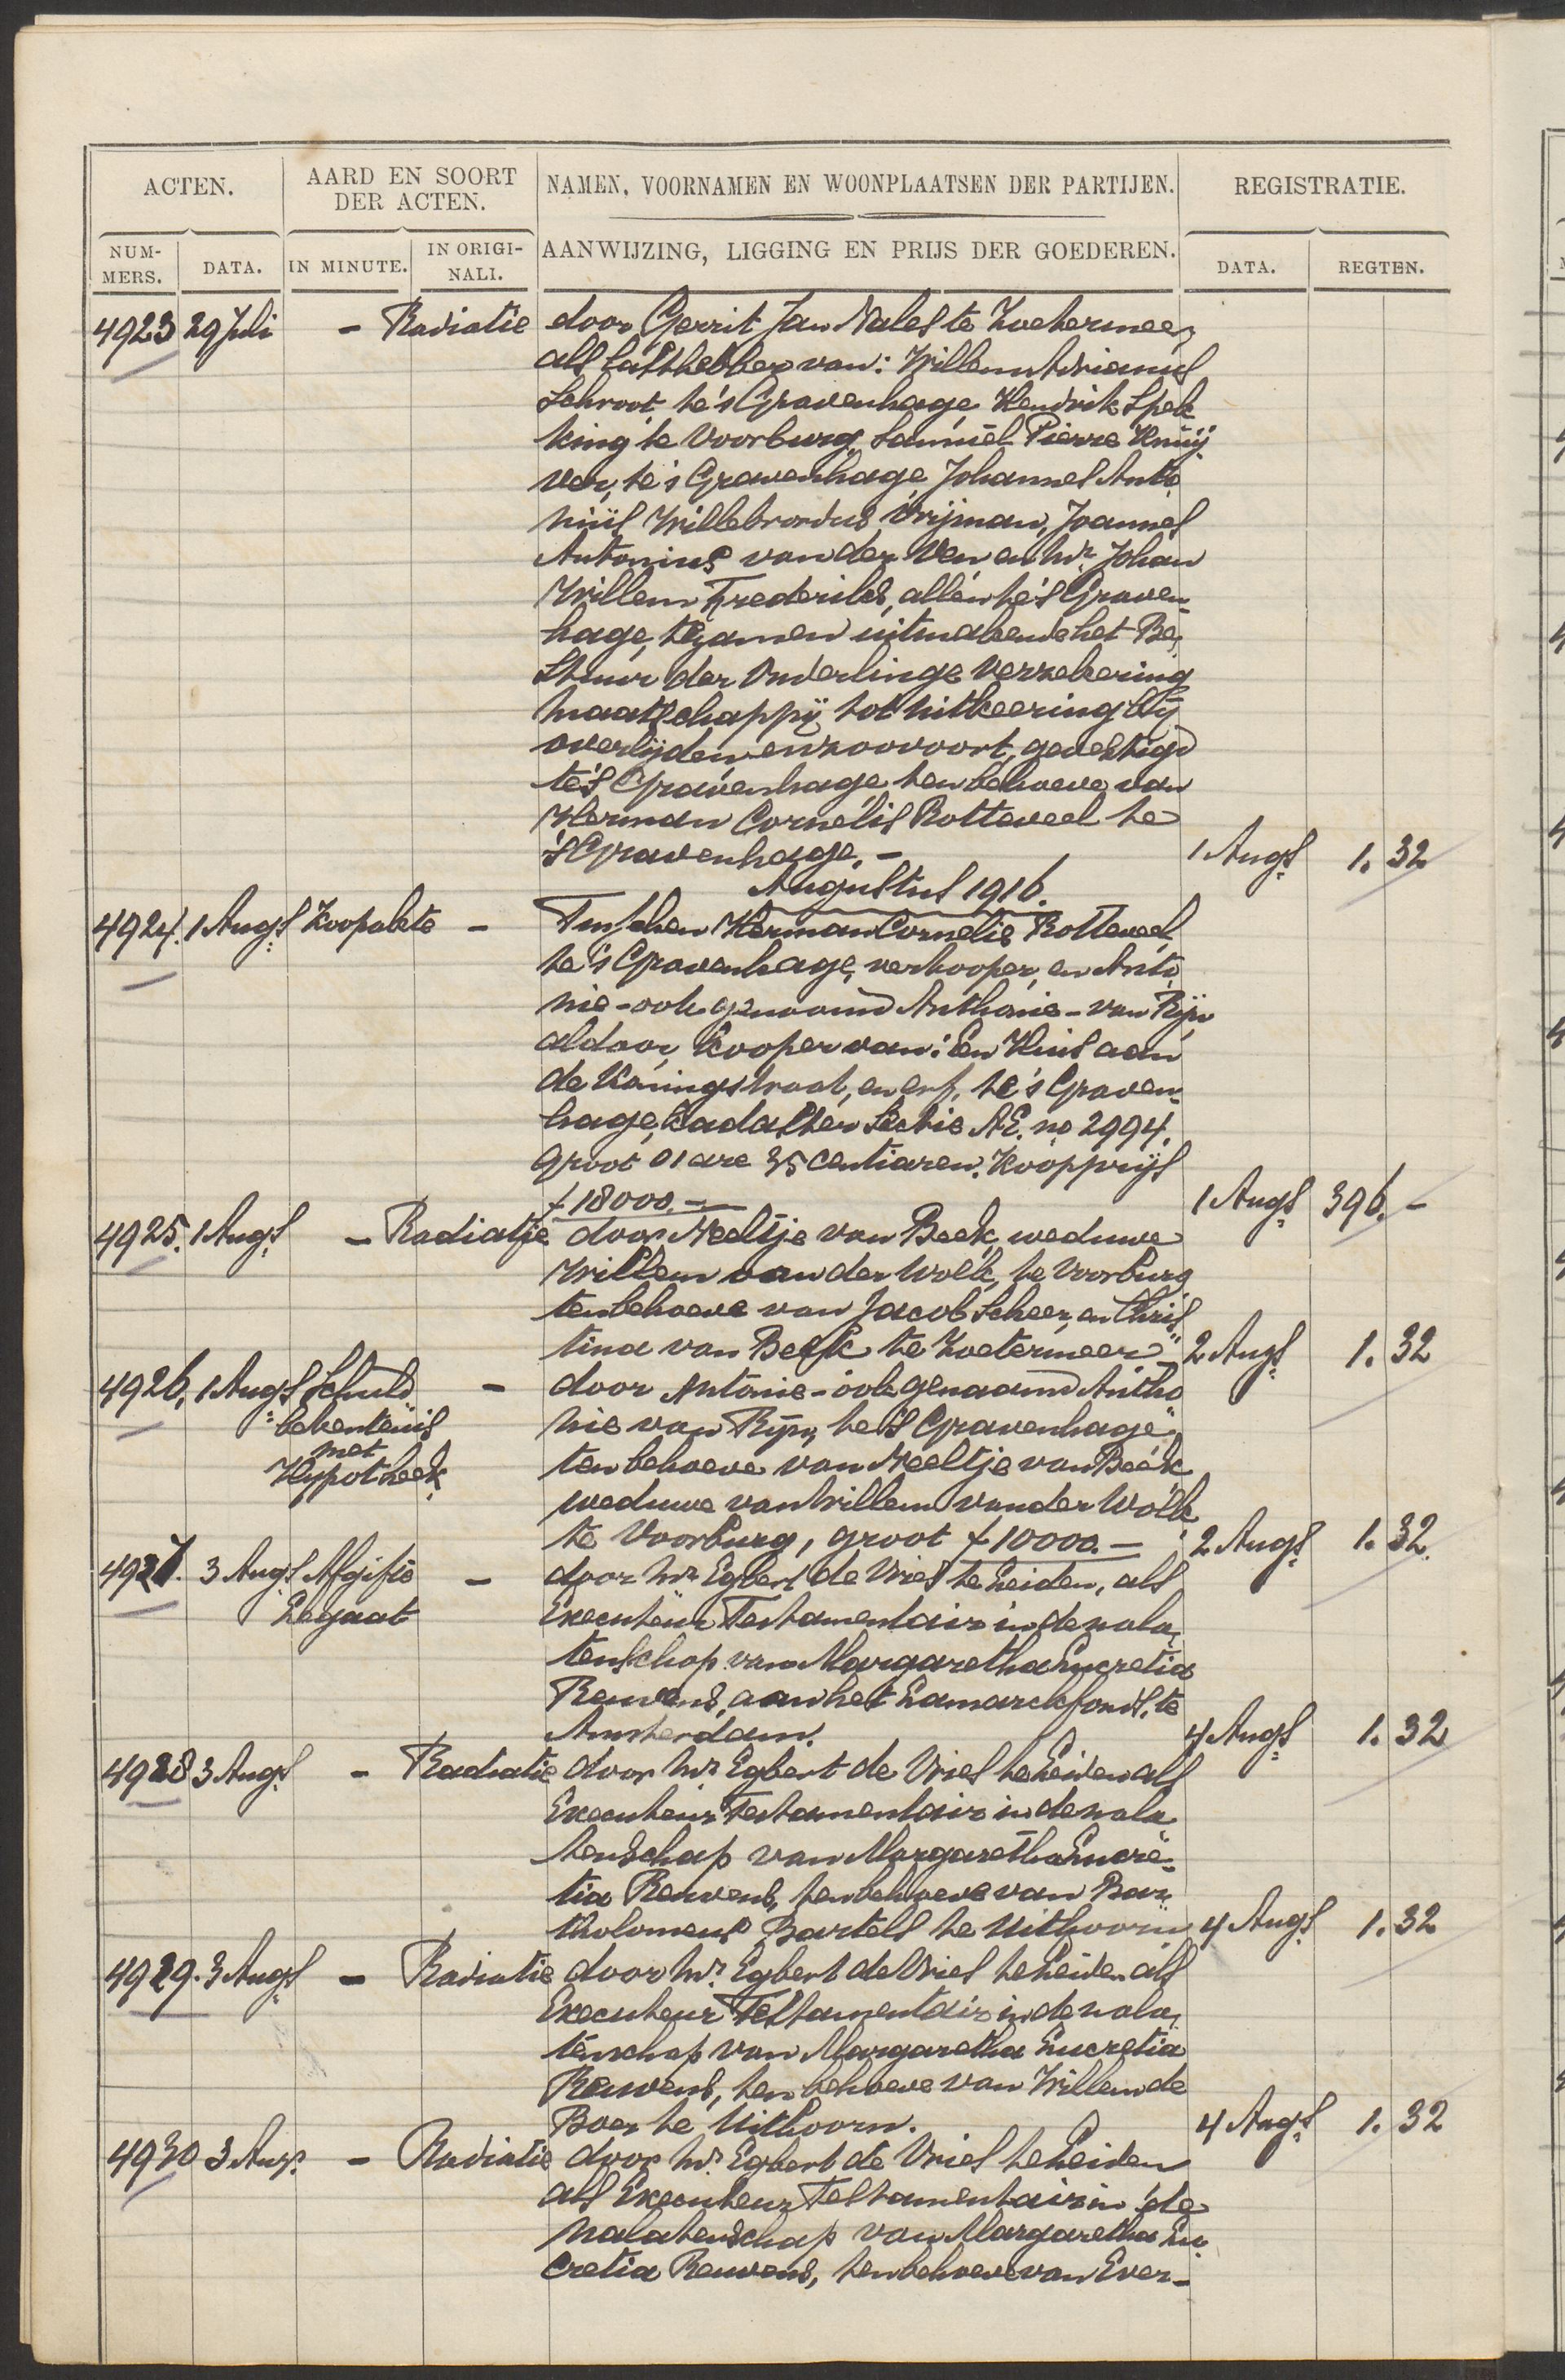 ACTEN.
AARD EN SOORT
DER ACTEN.
NAMEN, VOORNAMEN EN WOONPLAATSEN DER PARTIJEN.
REGISTRATIE.
NUM-
MERS.
DATA.
IN MINUTE.
IN ORIGI-
NALI.
AANWIJZING, LIGGING EN PRIJS DER GOEDEREN.
DATA.
REGTEN.
4923 29 Juli - Radiatie door Gerrit Jan Nales te Zoetermeer,
als lasthebber van: Willem Adrianus
Schroot te 's Gravenhage, Hendrik Spek
king te Voorburg, Samuël Pierre
ver, te 's Gravenhage, Johannes Anto
nius Willebrordus Vrijman, Joannes
Antonius van der Ven en Mr. Johan
Willem Frederiks, allen te 's Graven-
hage, tezamen uitmakende het Be-
stuur der Onderlinge verzekering
maatschappij tot uitkeering bij
overlijden, enzoovoort, gevestigd
te 's Gravenhage ten behoeve van
Herman Cornelis Rotteveel te
's Gravenhage. - 1 Augs. 1. 32
Augustus 1916.
4924. 1 Augs. Koopakte - Tusschen Herman Cornelis Rotteveel,
te 's Gravenhage, verkooper, en Anto
nie - ook genaamd Anthonie - van Rijn
aldaar, kooper van: Een Huis aan
de Koningstraat, en erf, te 's Graven-
hage, Kadaster Sectie AE. no 2994.
groot 01 are 35 centiaren. Koopprijs
f 18000.- 1 Augs. 396. -
4925. 1 Augs. - Radiatie door Neeltje van Beek, weduwe
Willem van der Wolk, te Voorburg
ten behoeve van Jacob Scheer, en Chris
tina van Beek te Zoetermeer 2 Augs. 1. 32
4926. 1 Augs. Schuld - door Antonie - ook genaamd Antho
bekentenis nie van Rijn, te 's Gravenhage
met
Hypotheek ten behoeve van Neeltje van Beek
weduwe van Willem van der Wolk
te Voorburg, groot f 10000.- 2 Augs. 1. 32.
4927. 3 Augs. Afgifte - door Mr. Egbert de Vries te Leiden, als
Legaat Executeur Testamentair in de nala,
tenschap van Margaretha Lucretia
Reuvens, aan het Lamarckfonds, te
Amsterdam. 4 Augs. 1. 32
4928 3 Augs. - Radiatie door Mr. Egbert de Vries te Leiden als
Executeur Testamentair in de nala
tenschap van Margaretha Lucre-
tia Reuvens, ten behoeve van Bar
tholomeus Bartels te Uithoorn 4 Augs. 1. 32
4929. 3 Augs. - Radiatie door Mr. Egbert de Vries te Leiden als
Executeur Testamentair in de nala,
tenschap van Margaretha Lucretia
Reuvens, ten behoeve van Willem de
Boer te Uithoorn. 4 Augs. 1. 32
4930 3 Aug. - Radiatie door Mr. Egbert de Vries te Leiden
als Executeur Testamentair in de
nalatenschap van Margaretha Lu
cretia Reuvens, ten behoeve van Ever-